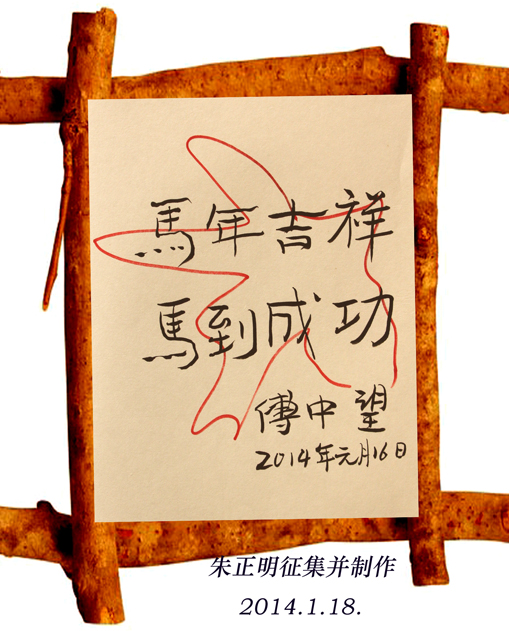 馬年吉祥
馬到成功
傅中望
2014年元月16日
朱正明征集并制作
2014.1.18.